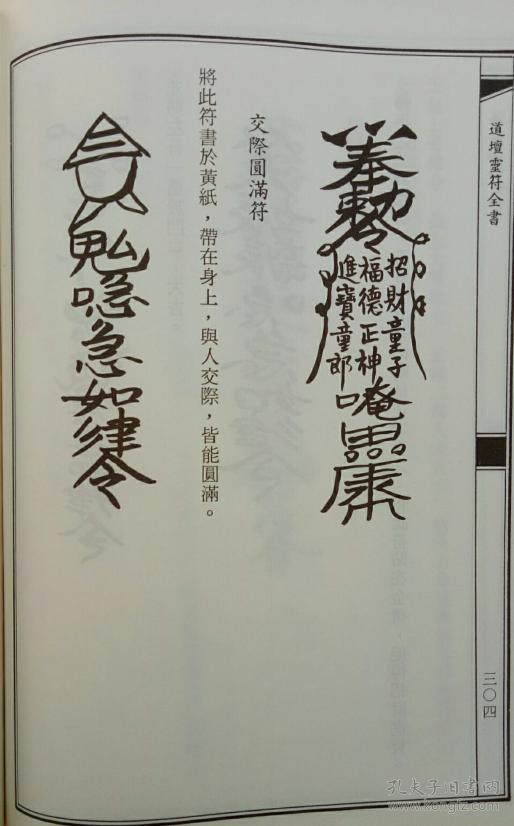 道壇靈符全書
三〇四
奉勅令
招財童子
福德正神
進寶童郎
唵
交際圓滿符
將此符書於黃紙，帶在身上，與人交際，皆能圓滿。
急如律令
孔夫子旧书网
kongfz.com